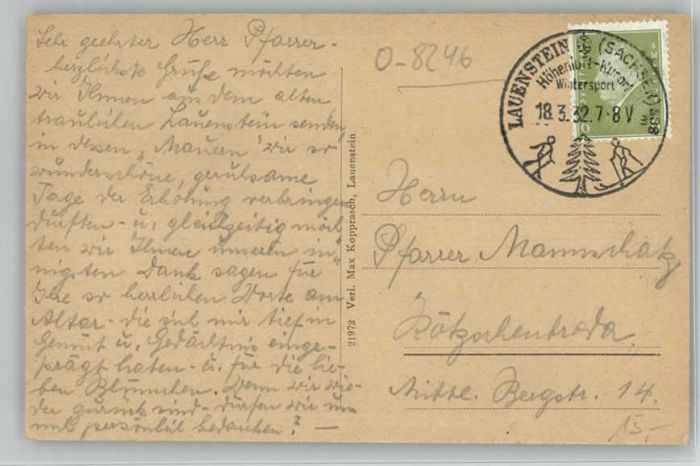 Sehr geehrter Herr Pfarrer -
herzlichste Grüße möchten
wir Ihnen aus dem alten
traulichen Lauenstein senden,
in dessen „Mauern" wir so
wunderschöne, geruhsame
Tage der Erholung verbringen
durften - u. gleichzeitig möch
ten wir Ihnen unseren in,
nigsten Dank sagen für
Ihre so herrlichen Worte am
Altar - die sich mir tief in
Gemüt u. Gedächtnis einge-
prägt haben - u. für die lie-
ben Blümchen. Wenn wir wie-
der zurück sind - dürfen wir uns
mal persönlich bedanken? —
21972 Verl. Max Kopprasch, Lauenstein
O-8246
LAUENSTEIN (SACHSEN)
Höhenluft-Kurort
Wintersport
18.3.32.7-8V
Herrn
Pfarrer Mannschatz
Kötzschenbroda,
Mittl. Bergstr. 14.
15,-